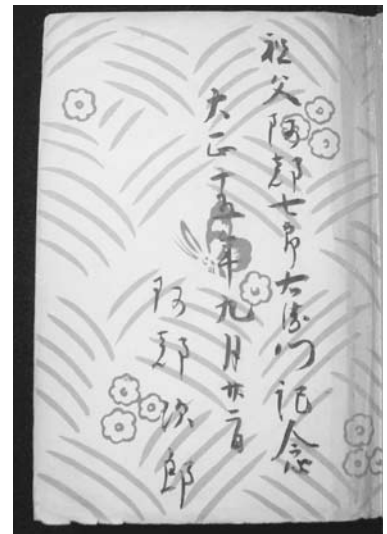 祖父阿部七郎右衛門記念
大正十五年九月廿二日
阿部次郎